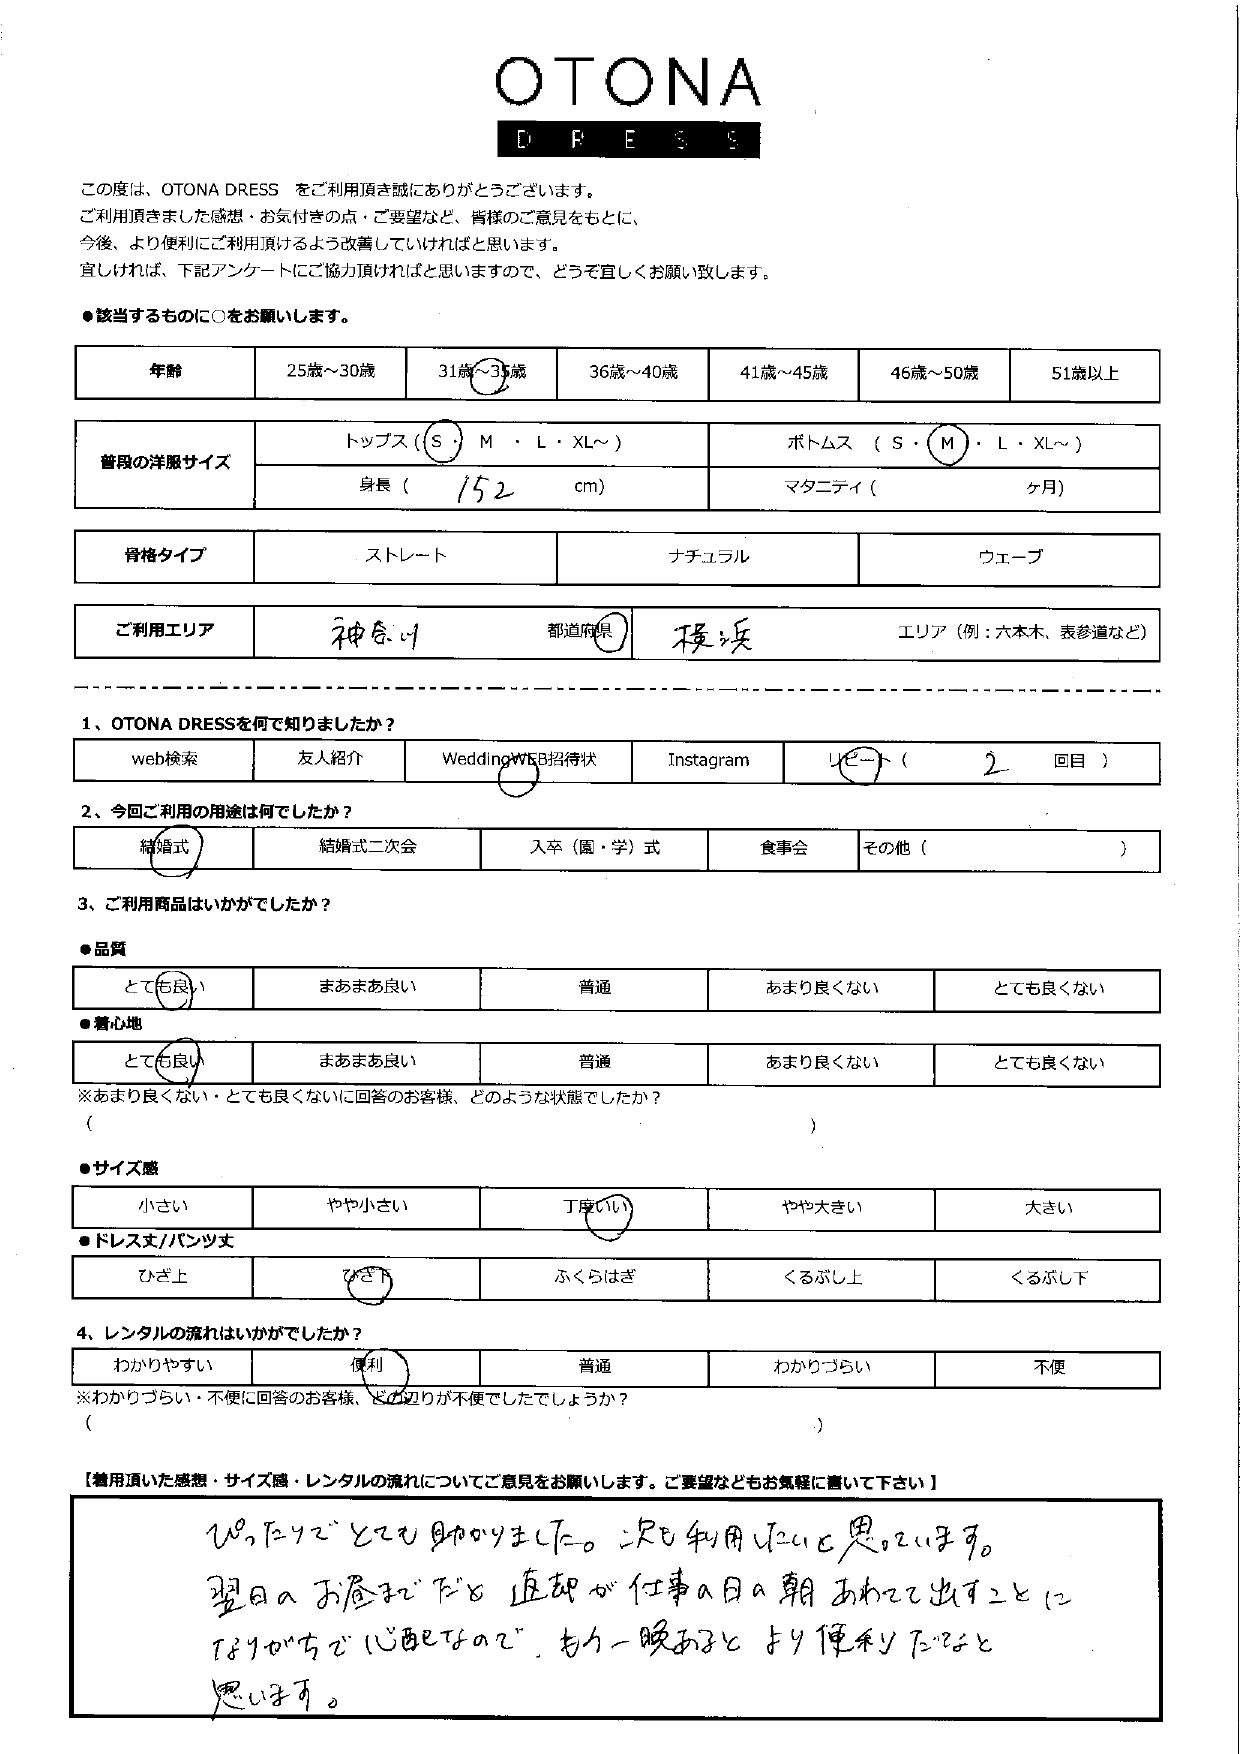 OTONA
DRESS
この度は、OTONA DRESS　をご利用頂き誠にありがとうございます。
ご利用頂きました感想・お気付きの点・ご要望など、皆様のご意見をもとに、
今後、より便利にご利用頂けるよう改善していければと思います。
宜しければ、下記アンケートにご協力頂ければと思いますので、どうぞ宜しくお願い致します。
●該当するものに○をお願いします。
年齢 25歳～30歳 31歳～35歳 36歳～40歳 41歳～45歳 46歳～50歳 51歳以上
普段の洋服サイズ トップス ( S ・ M ・ L ・ XL～ ) ボトムス ( S ・ M ・ L ・ XL～ )
身長 ( 152 cm) マタニティ ( ヶ月)
骨格タイプ ストレート ナチュラル ウェーブ
ご利用エリア 神奈川 都道府県 横浜 エリア（例：六本木、表参道など）
1、OTONA DRESSを何で知りましたか？
web検索 友人紹介 WeddingWEB招待状 Instagram リピート ( 2 回目 )
2、今回ご利用の用途は何でしたか？
結婚式 結婚式二次会 入卒（園・学）式 食事会 その他 ( )
3、ご利用商品はいかがでしたか？
●品質
とても良い まあまあ良い 普通 あまり良くない とても良くない
●着心地
とても良い まあまあ良い 普通 あまり良くない とても良くない
※あまり良くない・とても良くないに回答のお客様、どのような状態でしたか？
( )
●サイズ感
小さい やや小さい 丁度いい やや大きい 大きい
●ドレス丈/パンツ丈
ひざ上 ひざ下 ふくらはぎ くるぶし上 くるぶし下
4、レンタルの流れはいかがでしたか？
わかりやすい 便利 普通 わかりづらい 不便
※わかりづらい・不便に回答のお客様、どの辺りが不便でしたでしょうか？
( )
【着用頂いた感想・サイズ感・レンタルの流れについてご意見をお願いします。ご要望などもお気軽に書いて下さい】
ぴったりでとても助かりました。次も利用したいと思っています。
翌日のお昼までだと返却が仕事の日の朝あわてて出すことに
なりがちで心配なので、もう一晩あるとより便利だなと
思います。